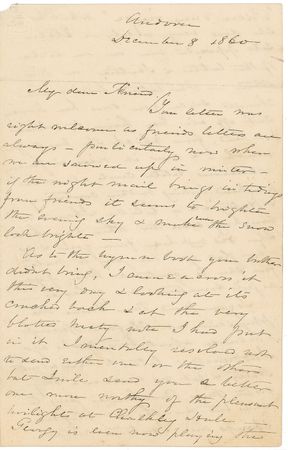 Andover
December 8 1860
My dear Friend
Your letter was
right welcome as friends letters are
always - particularly now when
we are snowed up in winter -
if the night mail brings in tidings
from friends it seems to brighten
the evening sky & make the snow
look bright -
As to the hymn book your brother
didnt bring, I came across it
this very day & looking at its
crushed back & at the very
blotted note I had put
in it I mentally resolved not
to send either one or the other
but I will send you a better
one more worthy of the pleasant
twilights at
Georgy is even now playing the